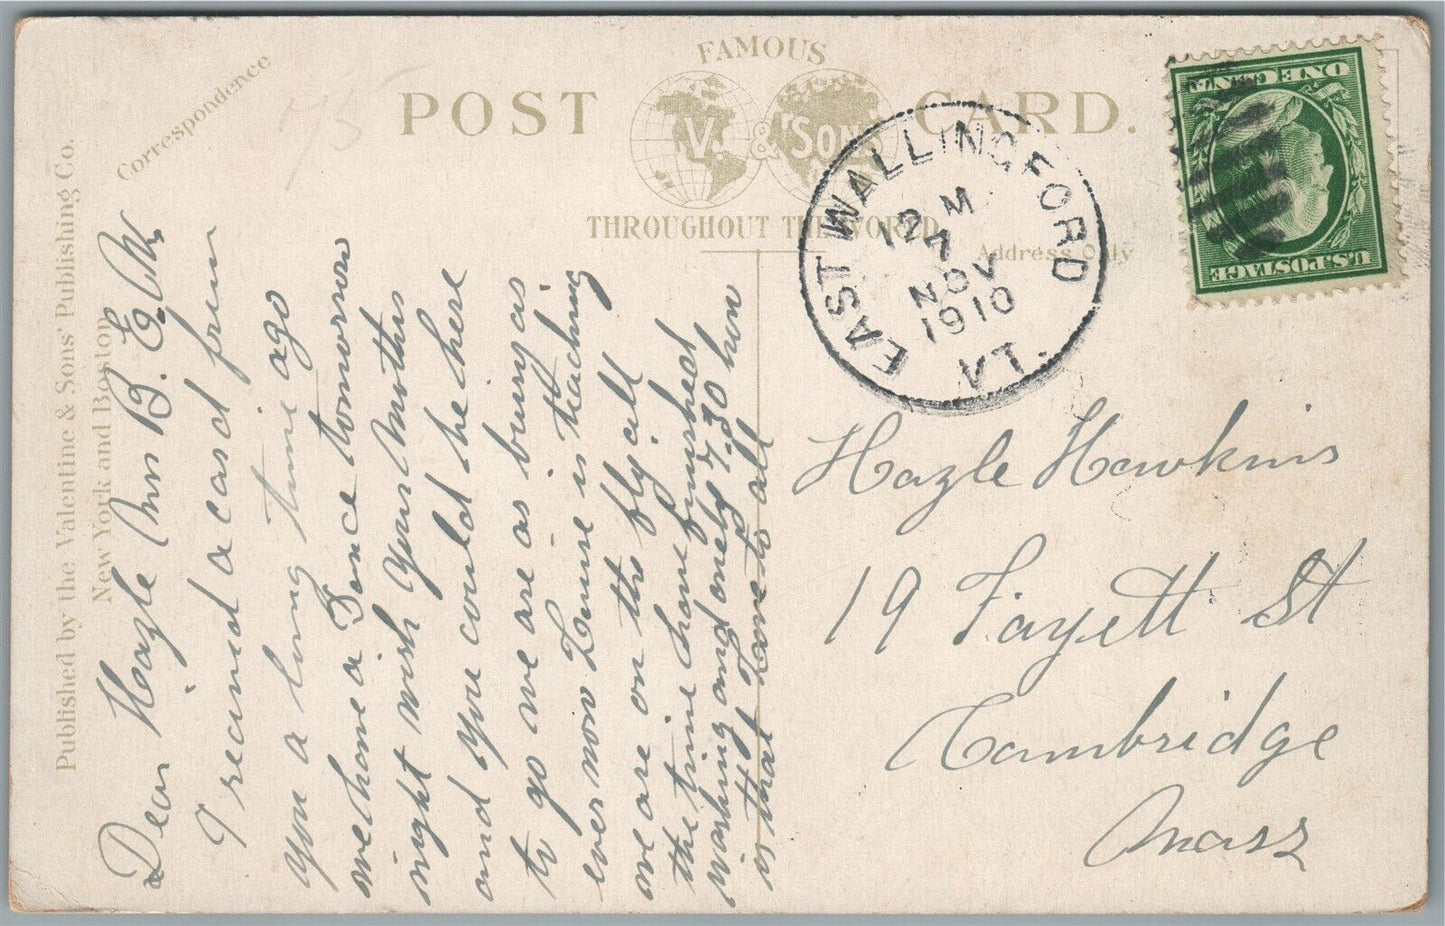 FAMOUS
POST CARD.
V. & SONS
THROUGHOUT THE WORLD
Correspondence
Address Only
Published by the Valentine & Sons' Publishing Co.
New York and Boston
ONE CENT
U.S. POSTAGE
EAST WALLINGFORD
12 M
7
NOV
1910
LA.
E. W.
Dear Hazle Mrs B.
I received a card from
you a long time ago
we have a Dance tomorrow
night wish your Mother
and you could be here
to go we are as busy as
ever now Louise is teaching
we are on the fly all
the time have finished
washing and only 7.30 how
is that Love to all
Hazle Hawkins
19 Fayett St
Cambridge
Mass